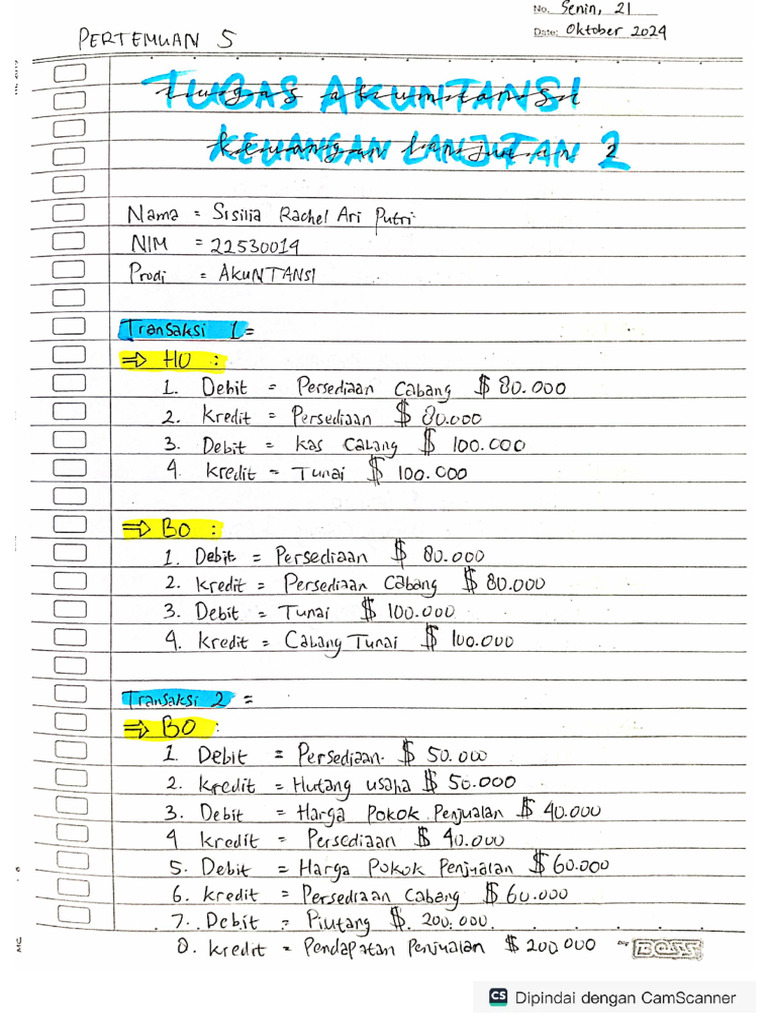 No. Senin, 21
Date: Oktober 2024
PERTEMUAN 5
TUGAS AKUNTANSI
KEUANGAN LANJUTAN 2
Nama = Sisilia Rachel Ari Putri
NIM = 22530019
Prodi = AKUNTANSI
Transaksi 1 =
⇒ HO :
1. Debit = Persediaan Cabang $ 80.000
2. Kredit = Persediaan $ 80.000
3. Debit = Kas Cabang $ 100.000
4. Kredit = Tunai $ 100.000
⇒ BO :
1. Debit = Persediaan $ 80.000
2. Kredit = Persediaan Cabang $ 80.000
3. Debit = Tunai $ 100.000
4. Kredit = Cabang Tunai $ 100.000
Transaksi 2 =
⇒ BO :
1. Debit = Persediaan. $ 50.000
2. Kredit = Hutang usaha $ 50.000
3. Debit = Harga Pokok Penjualan $ 40.000
4 Kredit = Persediaan $ 40.000
5. Debit = Harga Pokok Penjualan $ 60.000
6. Kredit = Persediaan Cabang $ 60.000
7. Debit = Piutang $. 200.000.
8. Kredit = Pendapatan Penjualan $ 200 000
BOSS
CS Dipindai dengan CamScanner